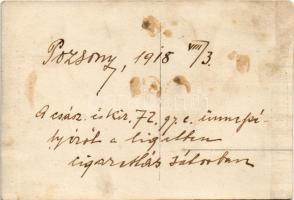 Pozsony, 1918 VIII/3.
A csász. és kir. 72. gy. e. ünnepé-
lyéről a ligetben
cigarettás sátorban